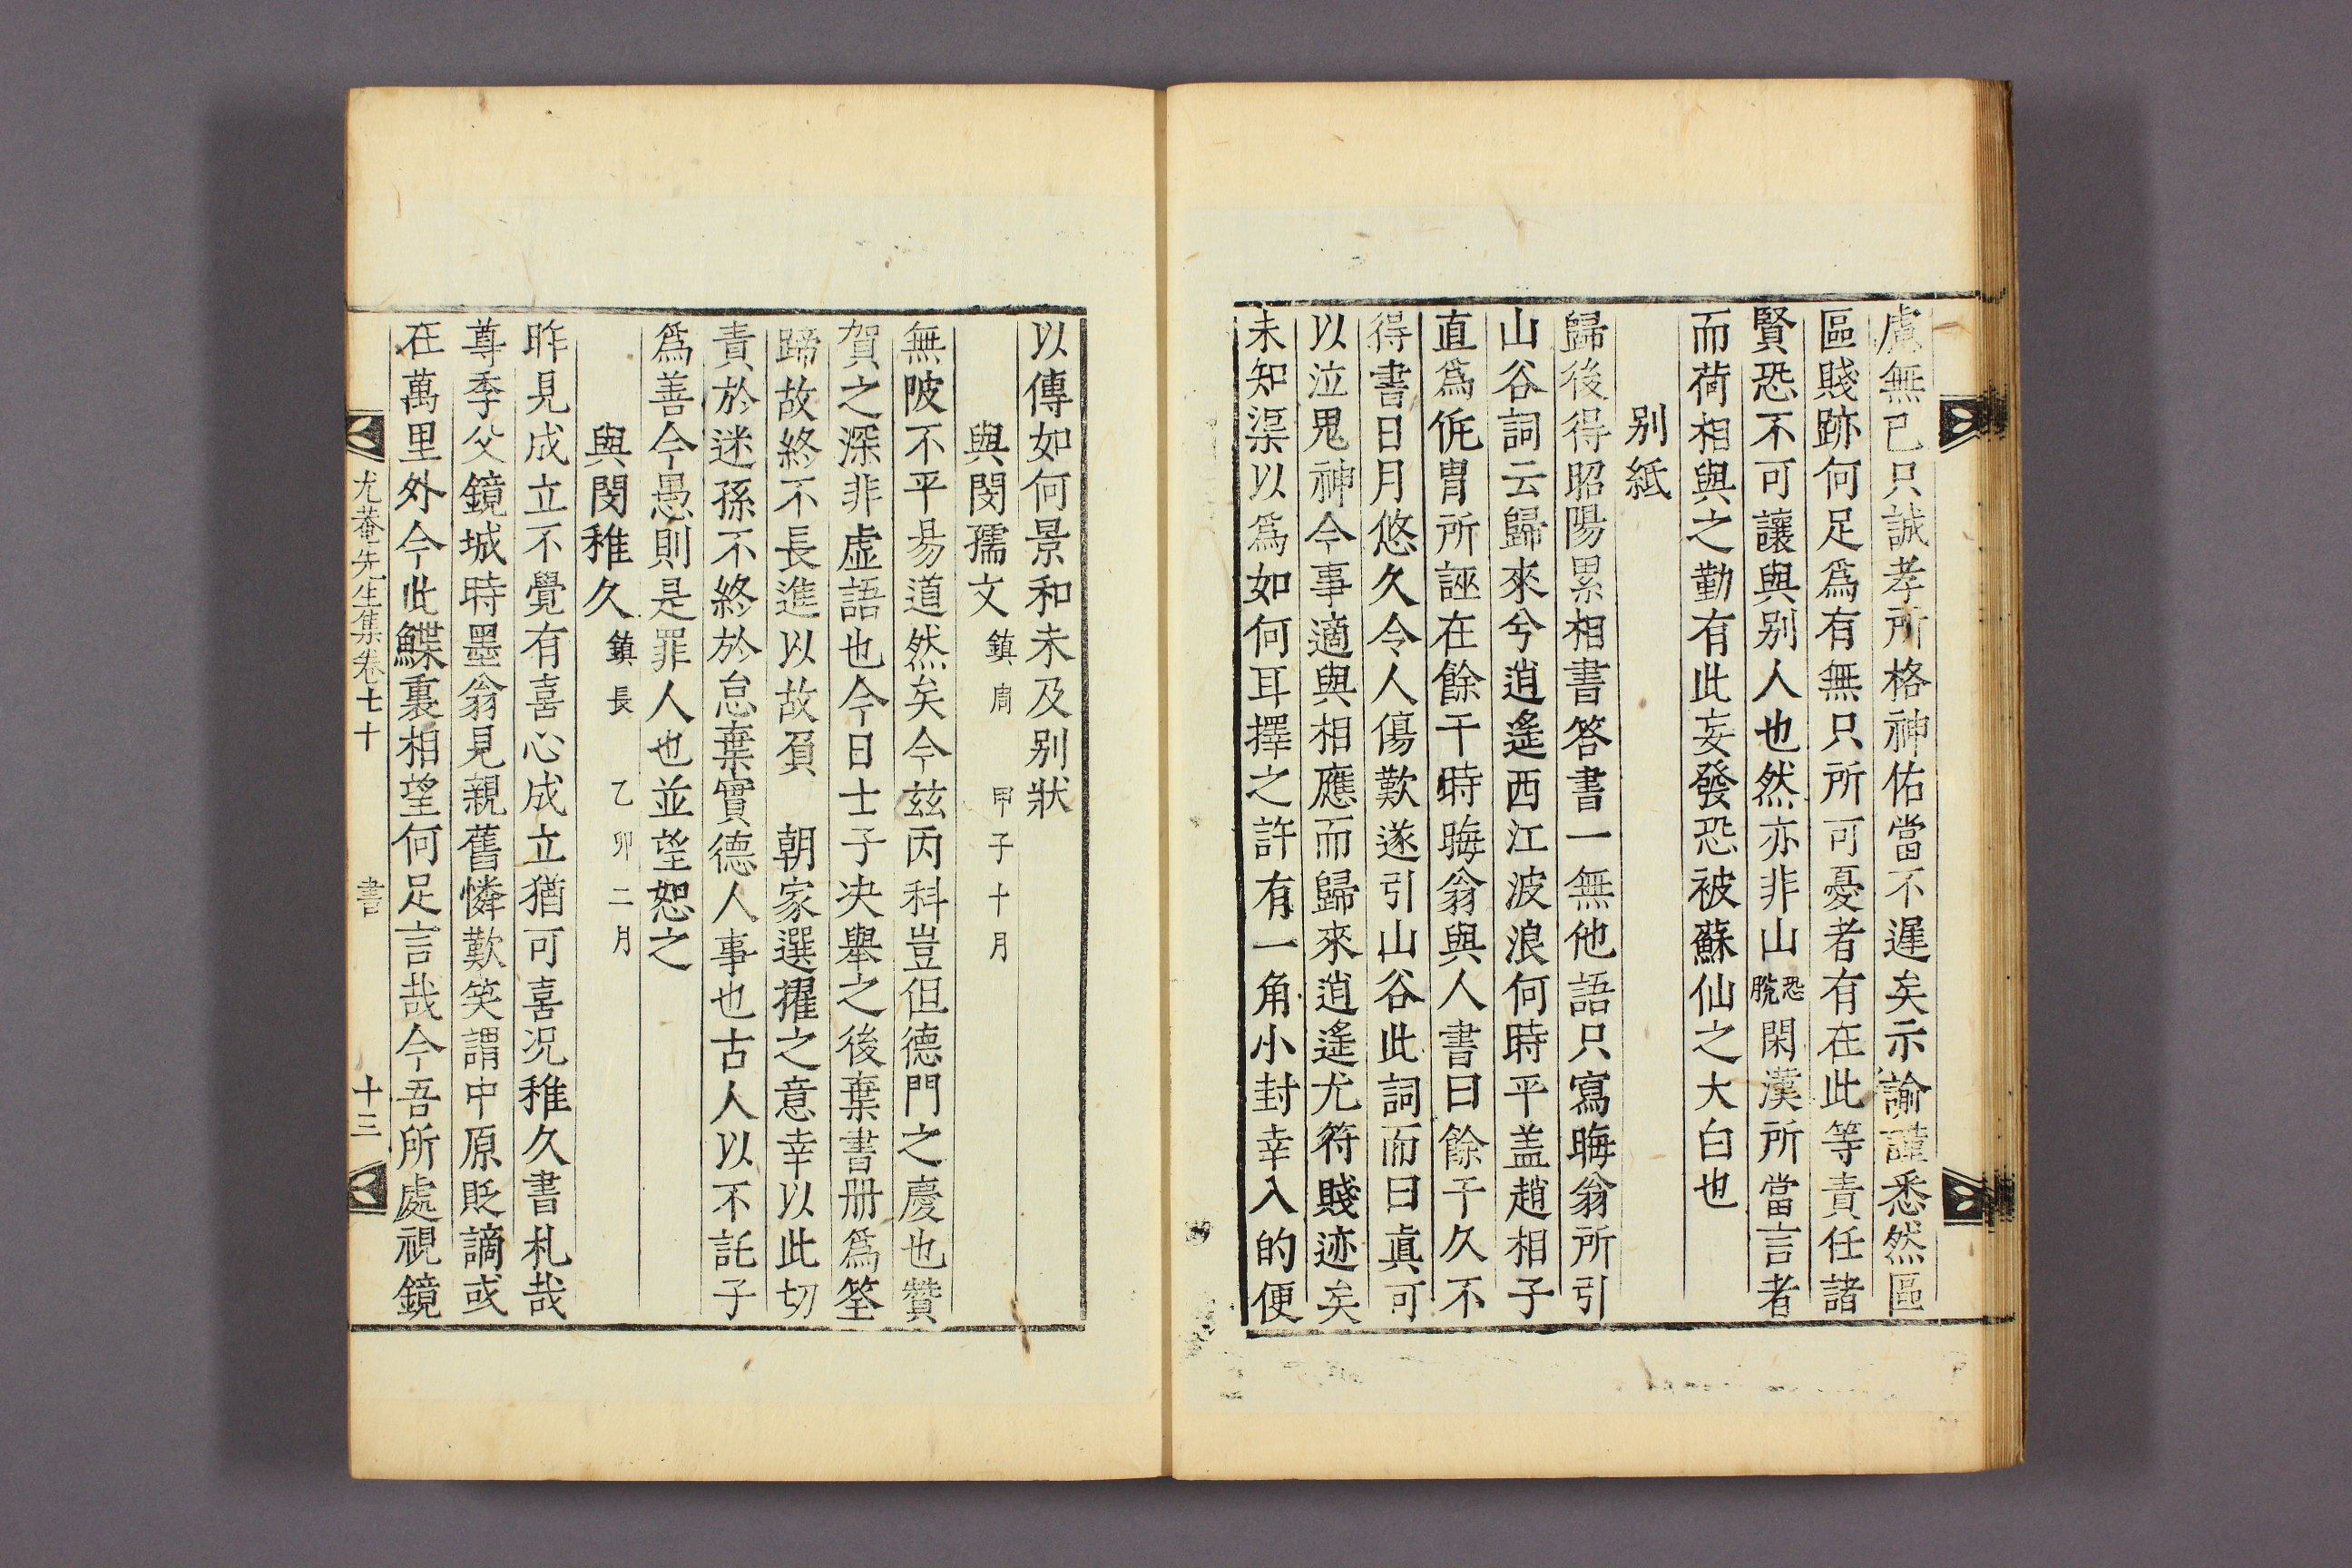 慮無已只誠孝所格神佑當不遲矣示諭謹悉然區
區賤跡何足爲有無只所可憂者有在此等責任諸
賢恐不可讓與別人也然亦非山恐脫閑漢所當言者
而荷相與之勤有此妄發恐被蘇仙之大白也
別紙
歸後得昭陽累相書答書一無他語只寫晦翁所引
山谷詞云歸來兮逍遙西江波浪何時平盖趙相子
直爲侂胄所誣在餘干時晦翁與人書曰餘干久不
得書日月悠久令人傷歎遂引山谷此詞而曰眞可
以泣鬼神今事適與相應而歸來逍遙尤符賤迹矣
未知渠以爲如何耳擇之許有一角小封幸入的便
以傳如何景和未及別狀
與閔孺文鎭周 甲子十月
無陂不平易道然矣今玆丙科豈但德門之慶也贊
賀之深非虛語也今日士子决擧之後棄書册爲筌
蹄故終不長進以故負 朝家選擢之意幸以此切
責於迷孫不終於怠棄實德人事也古人以不託子
爲善今愚則是罪人也並望恕之
與閔稚久鎭長 乙卯二月
昨見成立不覺有喜心成立猶可喜况稚久書札哉
尊季父鏡城時墨翁見親舊憐歎笑謂中原貶謫或
在萬里外今此鰈裏相望何足言哉今吾所處視鏡
尤菴先生集卷七十 書 十三